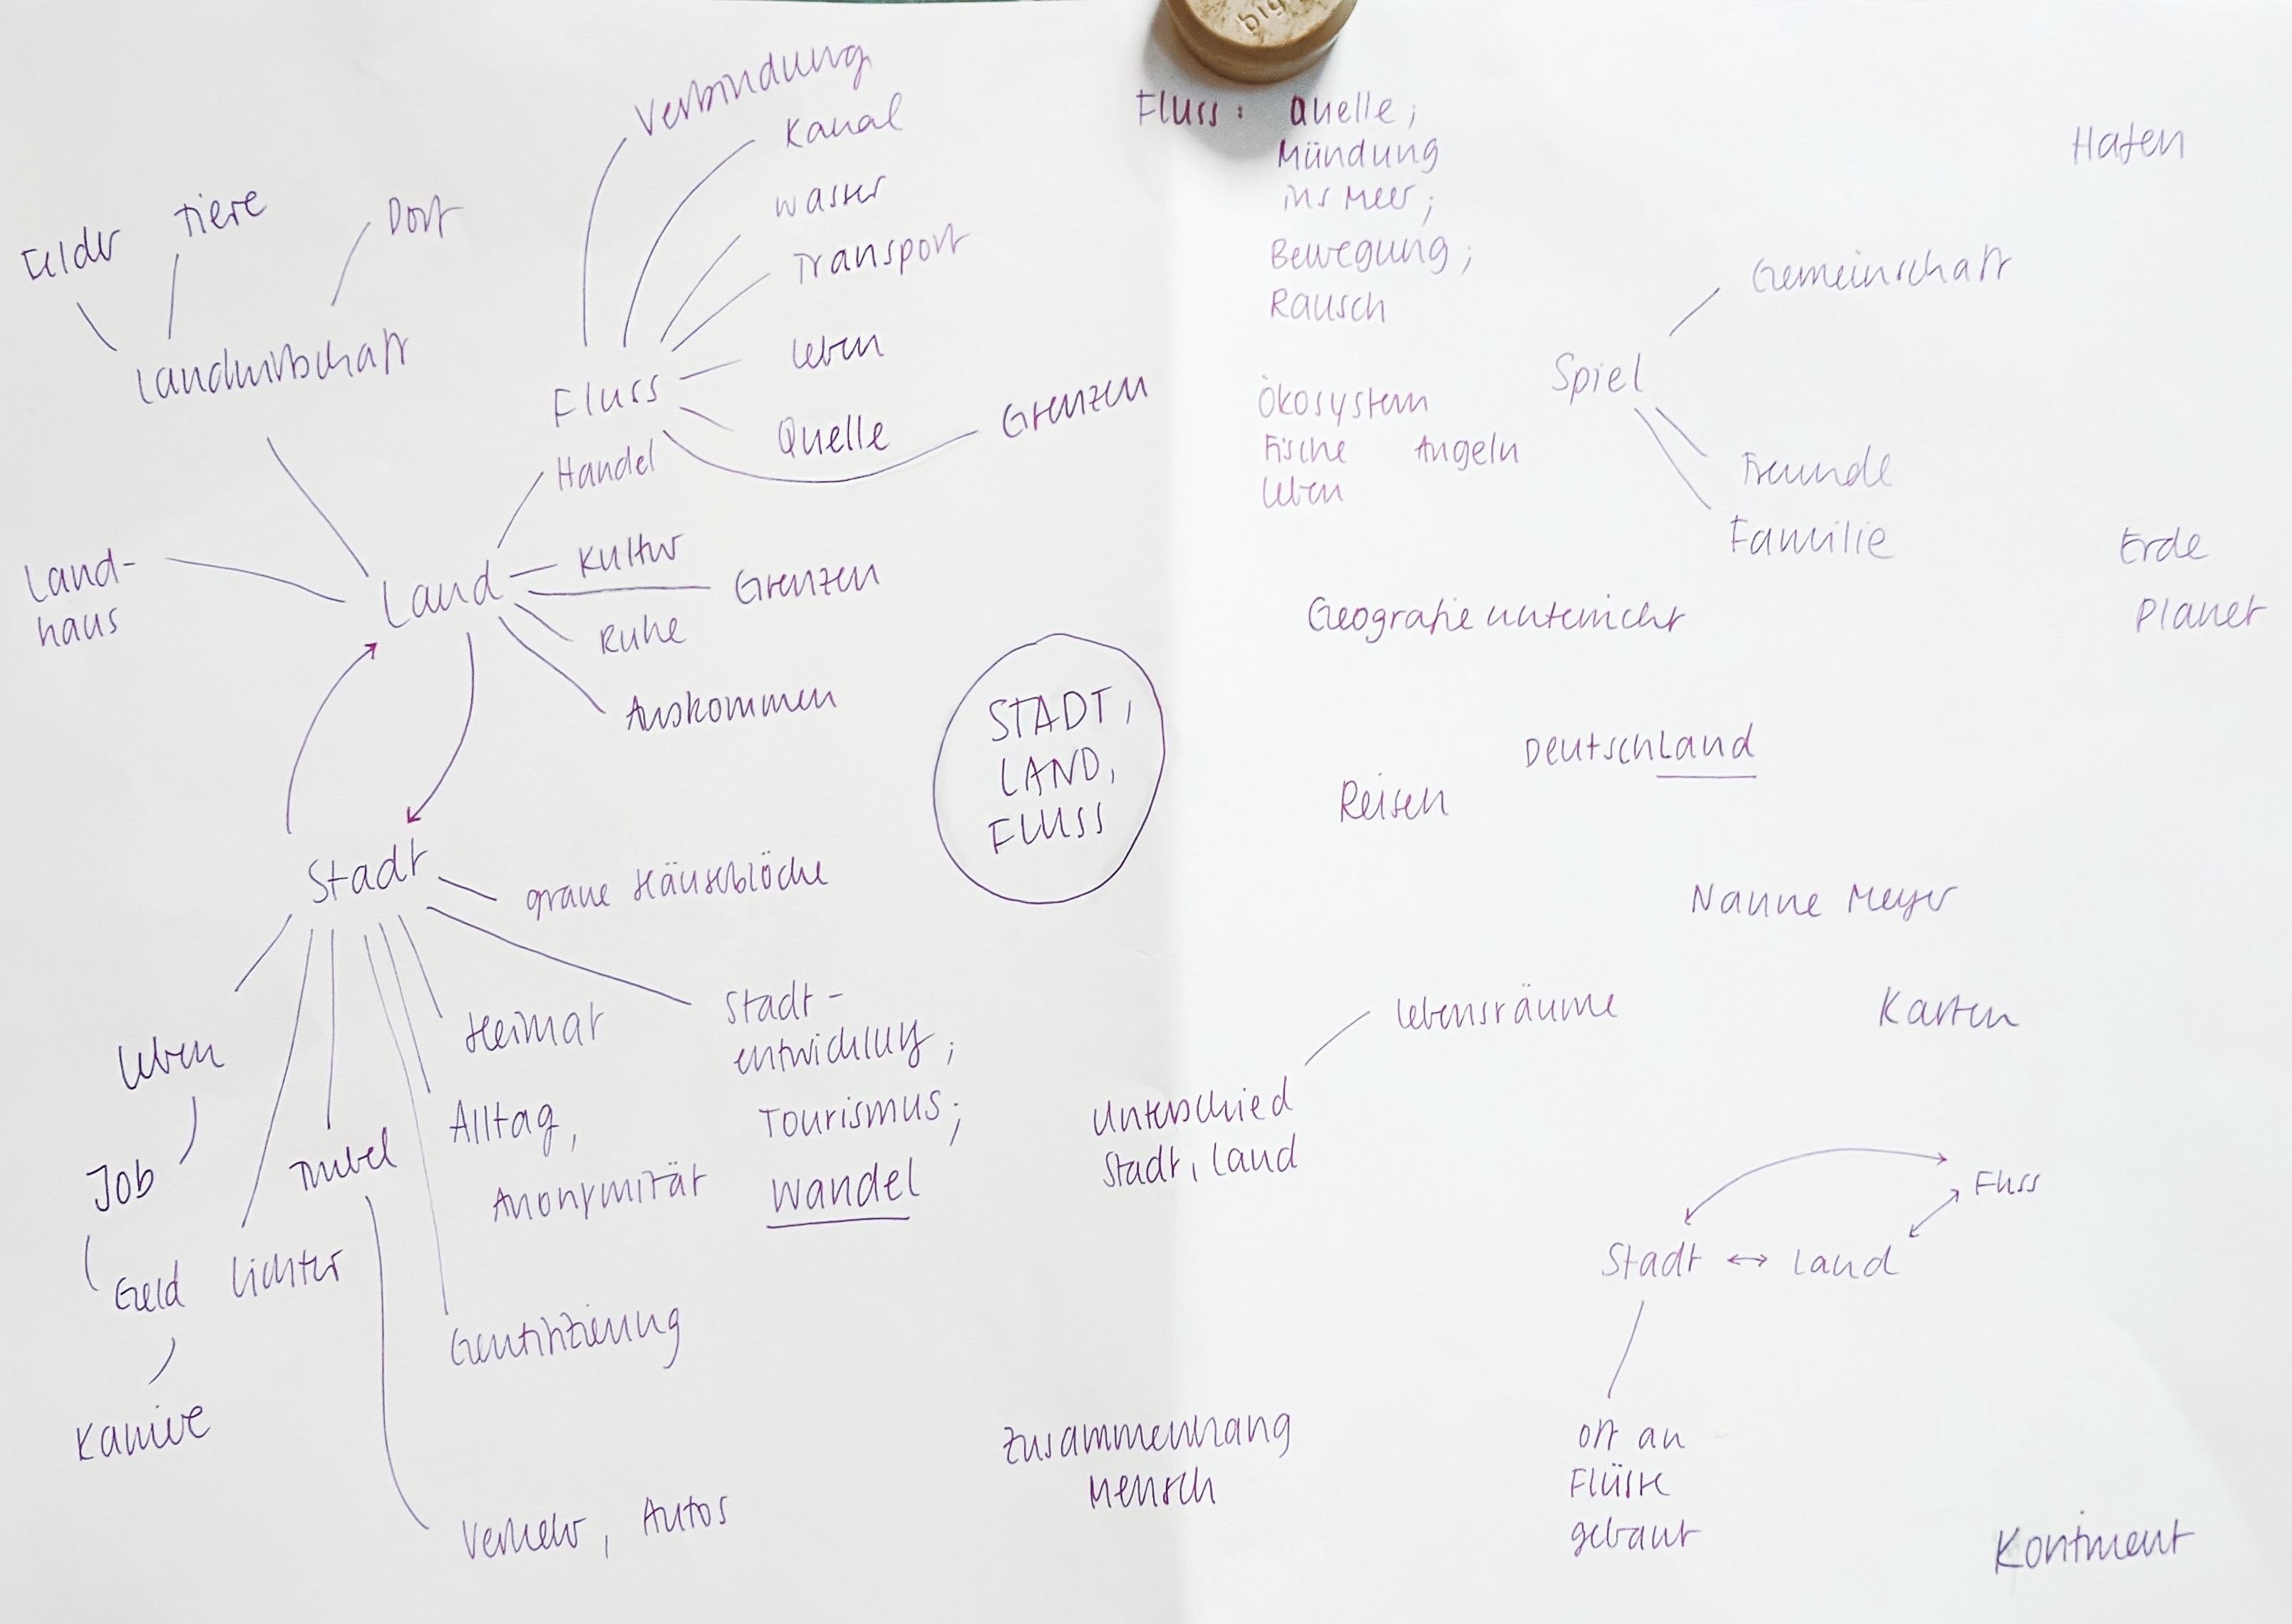 big
Verbindung
Kanal
Wasser
Transport
Leben
Quelle
Grenzen
Fluss
Felder
Tiere
Dorf
Landwirtschaft
Land-
haus
Land
Handel
Kultur
Grenzen
Ruhe
Auskommen
STADT,
LAND,
FLUSS
Stadt
graue Häuserblöcke
Stadt-
entwicklung;
Tourismus;
Wandel
Heimat
Alltag,
Anonymität
Leben
Job
Geld
Karriere
Lichter
Trubel
Gentrifizierung
Verkehr, Autos
Fluss: Quelle;
Mündung
ins Meer;
Bewegung;
Rausch
Ökosystem
Fische Angeln
Leben
Hafen
Gemeinschaft
Spiel
Freunde
Familie
Erde
Planet
Geografieunterricht
Deutschland
Reisen
Nanne Meyer
Lebensräume
Karten
Unterschied
Stadt, Land
Fluss
Stadt ↔ Land
oft an
Flüsse
gebaut
Zusammenhang
Mensch
Kontinent